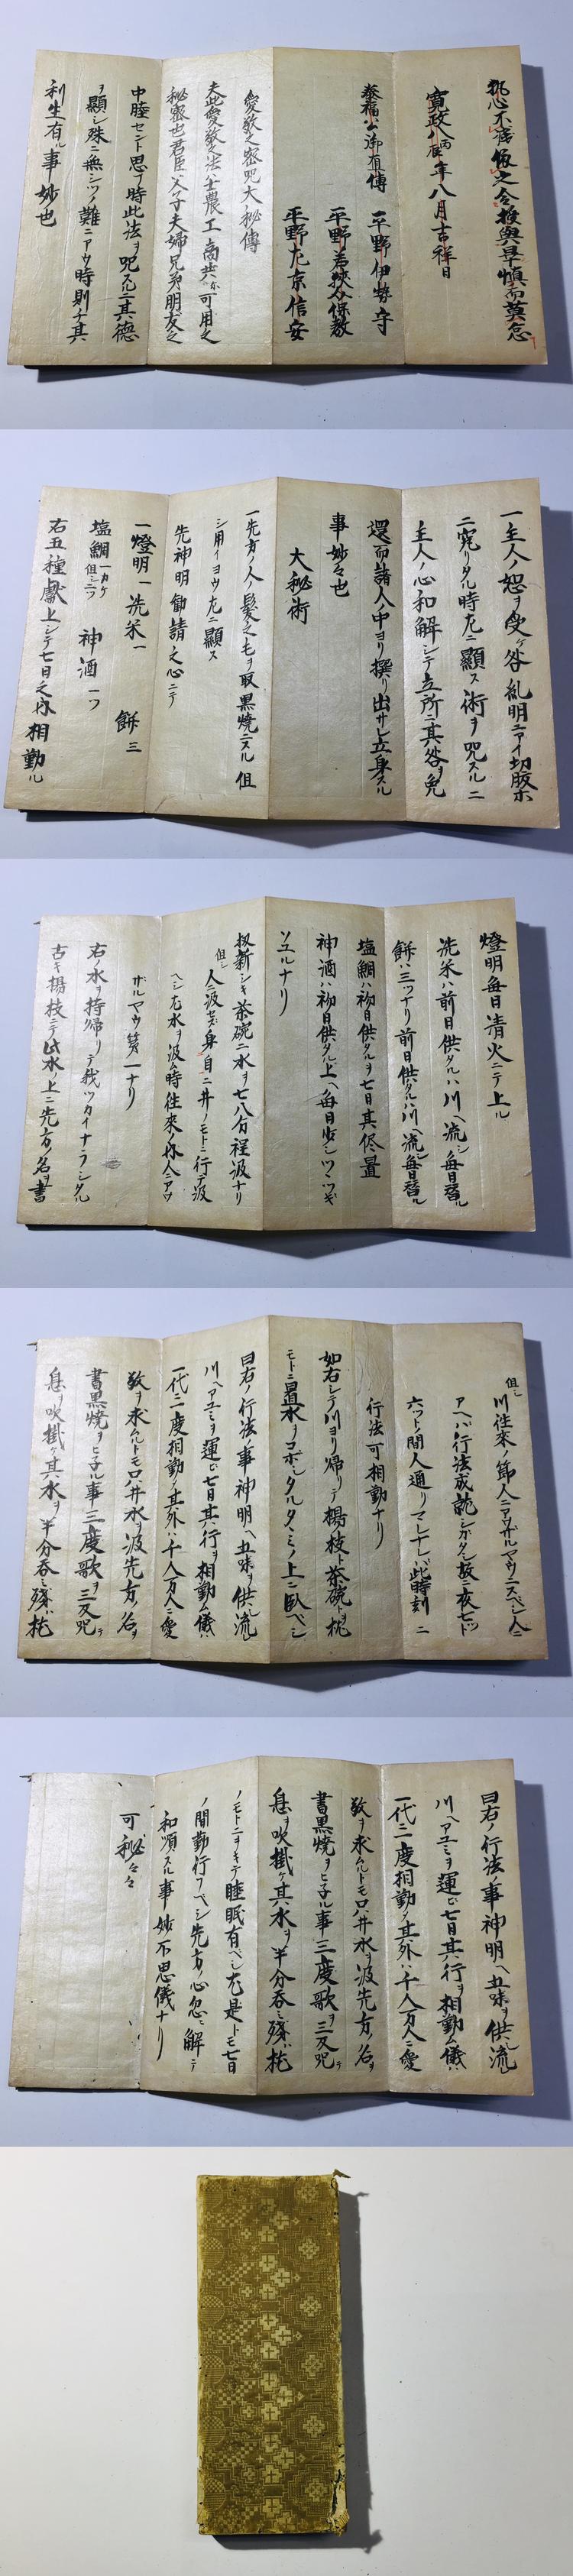 犯心不浅仮之令授与畢慎而莫怠
寛政八丙辰年八月吉祥日
泰福公御直傳 平野伊勢守
平野若狭介保教
平野左京信安
愛敬之密呪大秘傳
夫此愛敬之法士農工商共ニ可用之
秘密也君臣父子夫婦兄弟朋友之
中睦セント思フ時此法ヲ呪スルニ其徳
ヲ顯シ殊ニ無シツノ難ニアウ時則チ其
利生有ル事妙也
一主人ノ怒ヲ受ケ咎糺明ニアイ切腹ホ
ニ究リタル時左ニ顯ス術ヲ呪スルニ
主人ノ心和解シテ立所ニ其咎ヲ免
還而諸人ノ中ヨリ撰リ出サレ立身スル
事妙々也
大秘術
一先方ノ人ノ髪之モヲ取黒焼ニスル但
シ用イヨウ左ニ顯ス
先神明勧請之心ニテ
一燈明一 洗米一 餅三
塩鯛一カケ但シ二ツ 神酒一ツ
右五種献上シテ七日之内相勤ル
燈明毎日清火ニテ上ル
洗米ハ前日供タルハ川ヘ流シ毎日替ル
餅ハ三ツナリ前日供タルハ川ヘ流毎日替ル
塩鯛ハ初日供タルヲ七日其侭置
神酒ハ初日供タル上ヘ毎日少シツヽツギ
ソユルナリ
扨新シキ茶碗ニ水ヲ七八分程汲ナリ
但シ人ニ汲セズ身自ニ井ノモトニ行テ汲
ヘシ左水ヲ汲ム時往來ノ内人ニアワ
ザルマウ第一ナリ
右ノ水ヲ持帰リテ我ツカイナラシタル
古キ楊枝ニテ此水ノ上ニ先方ノ名ヲ書
但シ川往來ノ節人ニアワザルマウニスベシ人ニ
アヘバ行法成就シガタシ故ニ夜七ツ
六ツトノ間人通リマレナレバ此時刻ニ
行法可相勤ナリ
如右シテ川ヨリ帰リテ楊枝ト茶碗トヲ枕
モトニ置水ヲコボシタルタヽミノ上ニ臥ベシ
曰右ノ行法ノ事神明ヘ五味ヲ供シ流シ
川ヘアユミヲ運ビ七日其行ヲ相勤ム儀ハ
一代ニ二度相勤ノ其外ハ千人万人ニ愛
敬ヲ求ムルトモ只井水ヲ汲先方ノ名ヲ
書黒焼ヲヒネル事三度歌ヲ三反呪テ
息ヲ吹掛ケ其水ヲ半分呑ミ残ハ枕
曰右ノ行法ノ事神明ヘ五味ヲ供シ流シ
川ヘアユミヲ運ビ七日其行ヲ相勤ム儀ハ
一代ニ二度相勤ノ其外ハ千人万人ニ愛
敬ヲ求ムルトモ只井水ヲ汲先方ノ名ヲ
書黒焼ヲヒネル事三度歌ヲ三反呪テ
息ヲ吹掛ケ其水ヲ半分呑ミ残ハ枕
ノモトニヲキテ睡眠有ベシ尤是トモ七日
ノ間勤行フベシ先方ノ心忽ニ解テ
和順スル事妙不思儀ナリ
可秘々々